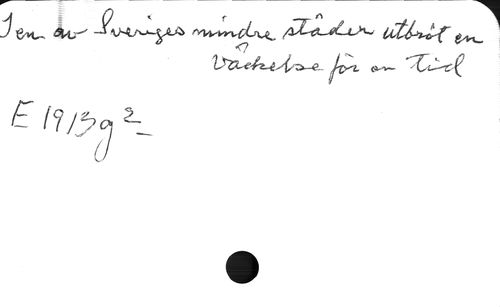 I en av Sveriges mindre städer utbröt en
väckelse för en tid
E 1913g 2-